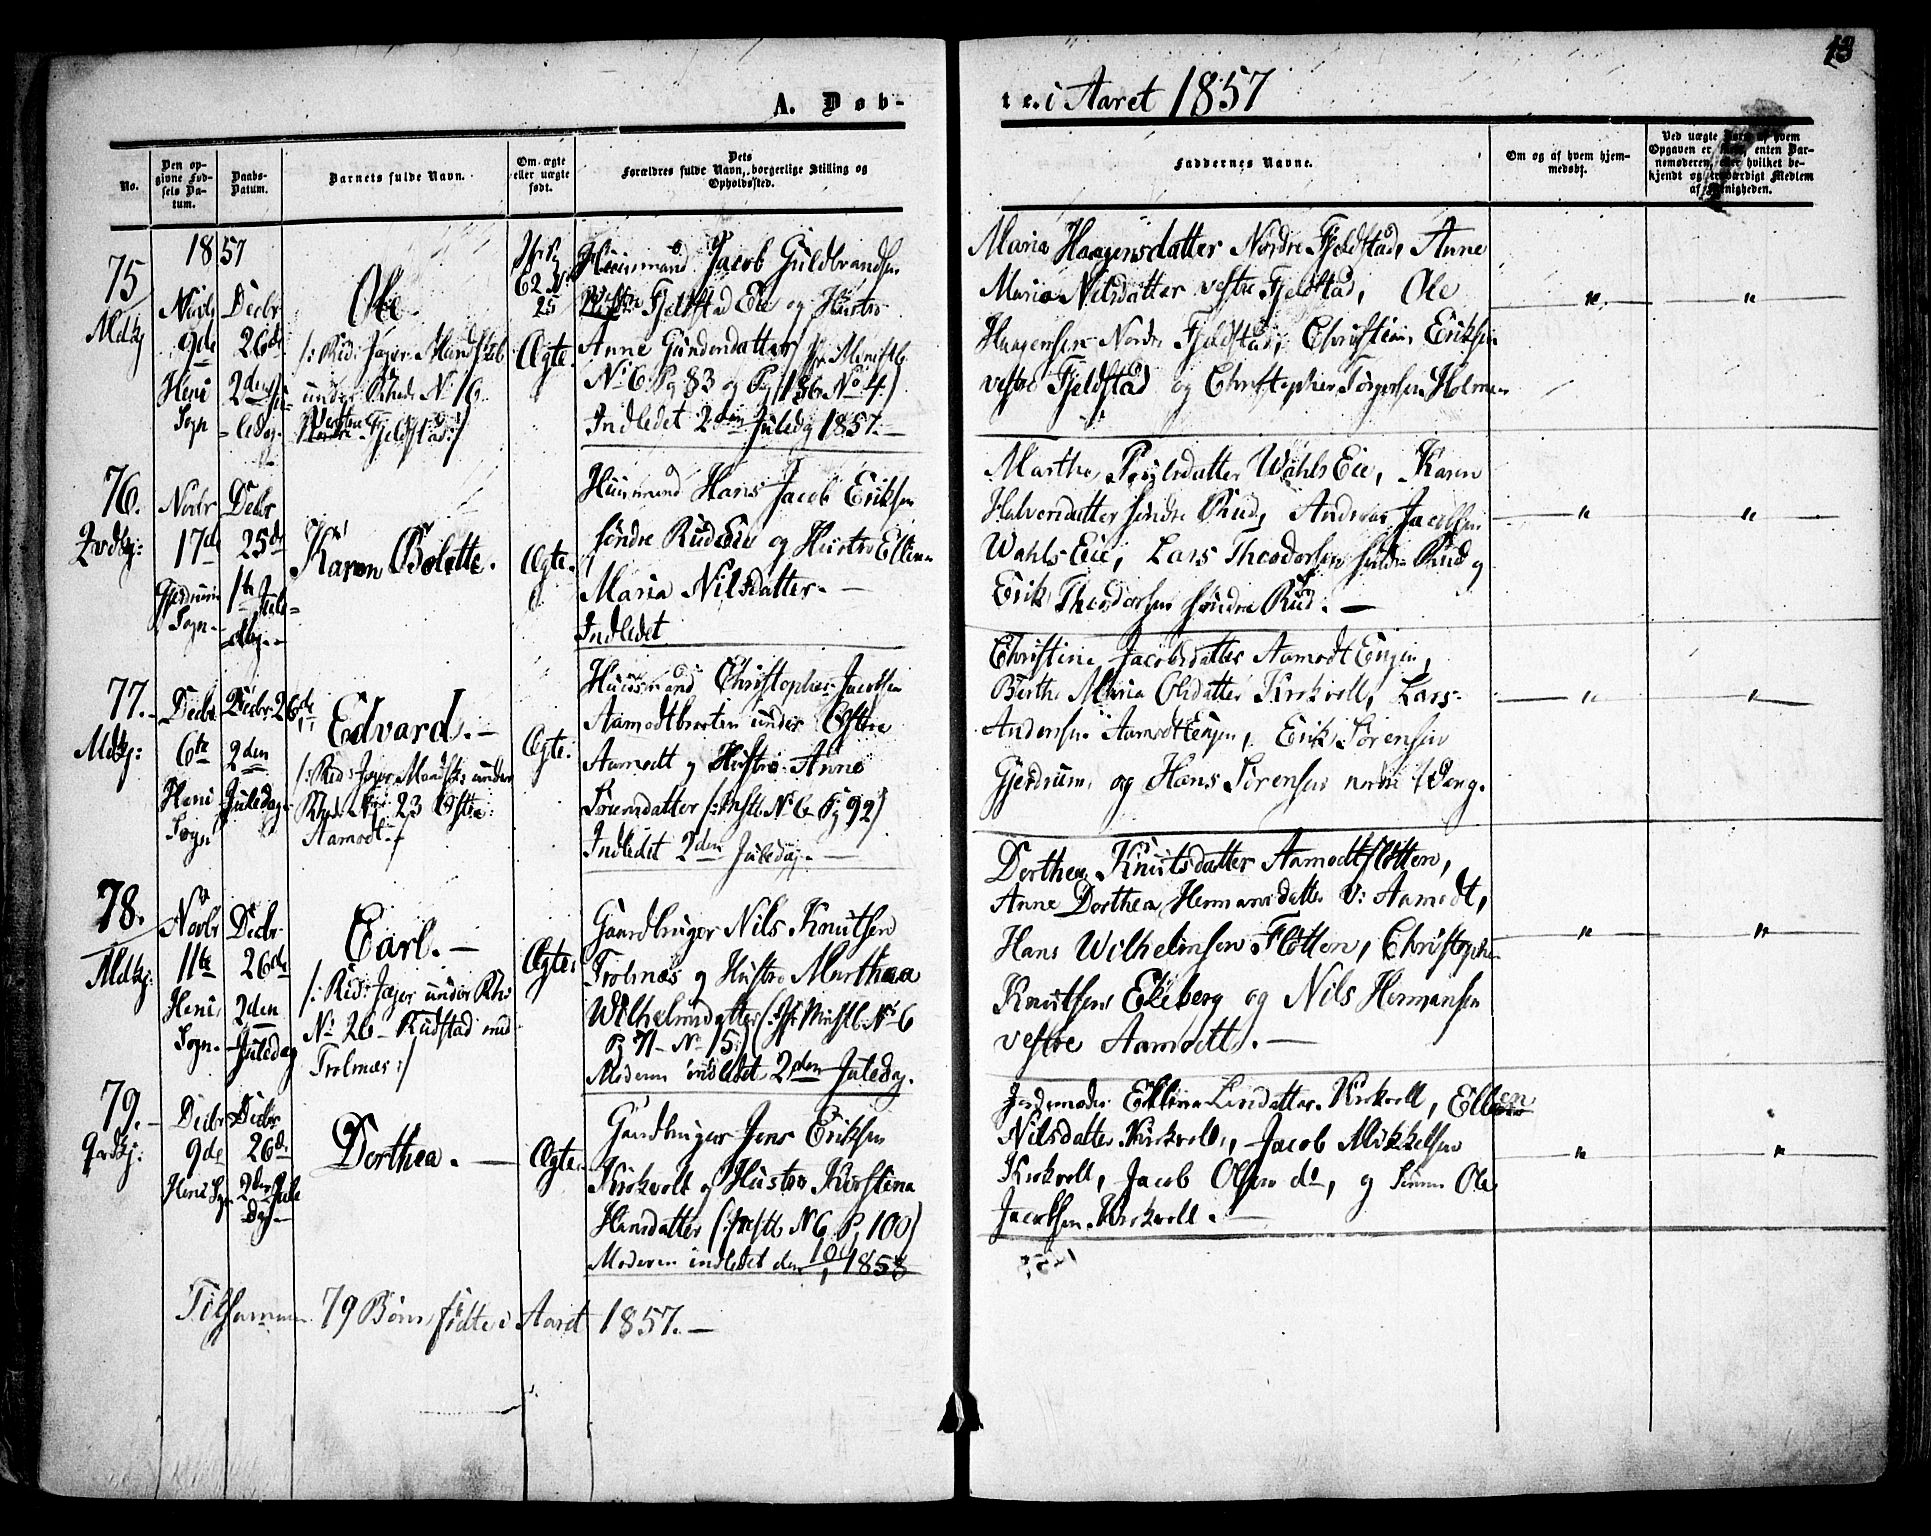 13
A. Døb-
te. i Aaret 1857
No.
Den op-
givne Fød-
sels Da-
tum.
Daabs-
Datum.
Barnets fulde Navn.
Om ægte
eller uægte
født.
Dets
Forældres fulde Navn, borgerlige Stilling og
Opholdssted.
Faddernes Navne.
Om og af hvem hjem-
medøbt.
Ved uægte Børn af hvem
Opgaven er skeet, enten Bar-
nemoderen, eller hvilket be-
kjendt og troværdigt Medlem
af Menigheden.
75
1857
Novbr
9de
Heni
Sogn
Decbr
26de
2den Ju-
ledag
Ole
Nordre Fjeldstad:/
Ægte.
Huusmand Jacob Guldbrandsen
Vestre Fjeldstad Eie og Hustro
Anne Gundersdatter
No 6 Pg 83 og Pg 186 No 4:)
Indledet 2den Juledag 1857.
Maria Haagensdatter Nordre Fjeldstad, Anne
Maria Nilsdatter vestre Fjeldstad, Ole
Haagensen Nordre Fjeldstad, Christian Eriksen
vestre Fjeldstad og Christopher Torgersen Holmen
76.
Novbr
17de
Gjerdrum
Sogn.
Decbr
25de
1ste Jule-
dag.
Karen Bolette.
Ægte.
Huusmand Hans Jacob Eriksen
søndre Ruds Eie og Hustro Ellen
Maria Nilsdatter.
Indledet
Marthe Poulsdatter Wahls Eie, Karen
Halvorsdatter søndre Rud, Andreas Jacobsen
Wahls Eie, Lars Theodorsen søndre Rud og
Erik Theodorsen søndre Rud.
77.
Mdkj:
Decbr
6te
Heni
Sogn
Decbr 26de
2den
Juledag
Edvard.
No 23 Østre
Aamodt
Ægte.
Huusmand Christopher Jacobsen
Aamodtbraaten under Østre
Aamodt og Hustro Anne
Sørensdatter No 6 Pg 92)
Indledet 2den Juledag.
Christine Jacobsdatter Aamodt Engen,
Berthe Maria Olsdatter Kirkvold, Lars
Andersen Aamodt Engen, Erik Sørensen
Gjerdrum, og Hans Sørensen nordre Wang.
78.
Mdkj:
Novbr
11te
Heni
Sogn.
Decbr
26de
2den
Juledag
Carl.
/: Rid: Jæger under
No 26 Rudstad med
Trolnæs:/
Ægte.
Gaardbruger Nils Knutsen
Trolnæs og Hustro Marthea
Wilhelmsdatter No 6
Pg 71 No 15:)
Moderen indledet 2den Juledag.
Dorthea Knutsdatter Aamodtfløtten,
Anne Dorthea Hermansdatter v: Aamodt,
Hans Wilhelmsen Fløtten, Christopher
Knutsen Ekeberg og Nils Hermansen
vestre Aamodt.
79.
Decbr
9de
Heni Sogn
Decbr
26de
2den Jule
dag.
Dorthea.
Ægte.
Gaardbruger Jens Eriksen
Kirkvold og Hustro Kirstina
Hansdatter No 6 P. 100)
Moderen indledet den 10/1 1858
Jordemoder Ellen Larsdatter Kirkvold, Ellen
Nilsdatter Kirkvold, Jacob Mikkelsen
Kirkvold, Jacob Olsen do, og Ole
Jacobsen Kirkvold.
Tilsammen 79 Børn fødte i Aaret 1857.